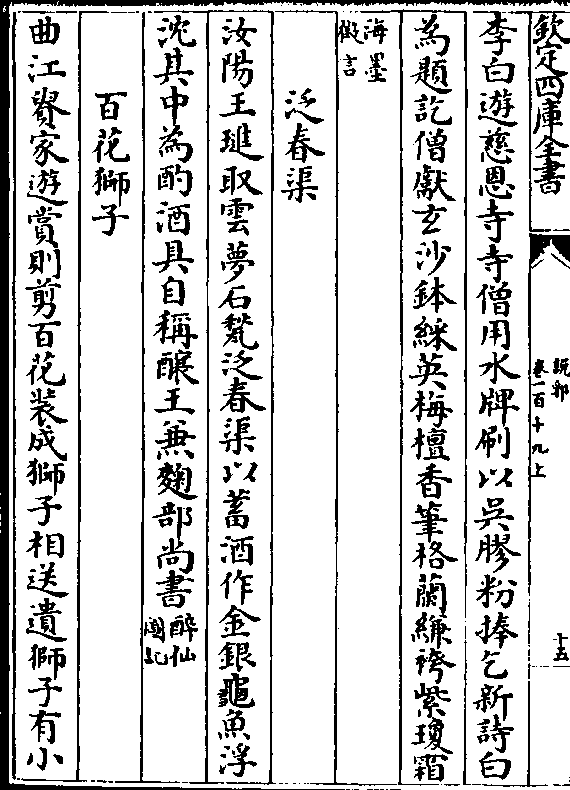 欽定四庫全書
說郛
卷一百十九上
十五
李白遊慈恩寺寺僧用水牌刷以吳膠粉捧乞新詩白
為題訖僧獻玄沙鉢綵英梅檀香筆格蘭縑袴紫瓊霜
海墨
微言
泛春渠
汝陽王璡取雲夢石甃泛春渠以蓄酒作金銀龜魚浮
沈其中為酌酒具自稱釀王兼麴部尚書醉仙
圖記
百花獅子
曲江貴家遊賞則剪百花装成獅子相送遺獅子有小